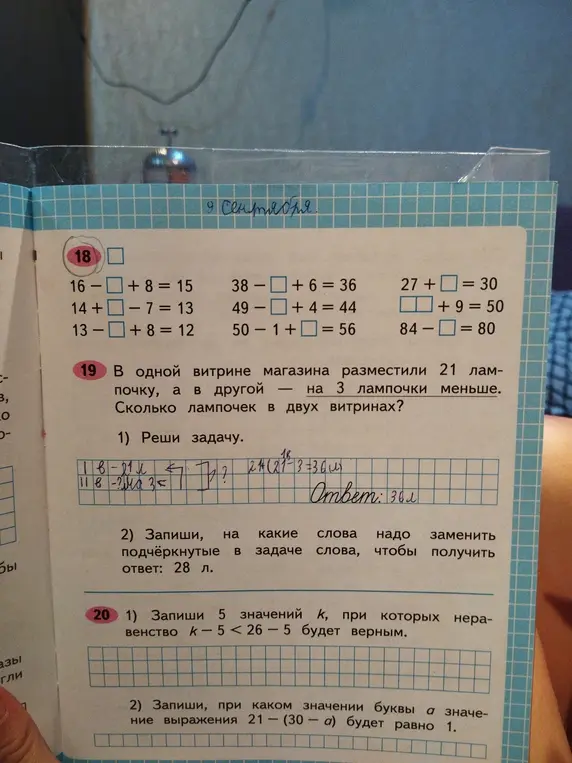 9 сентября
18 □
16 − □ + 8 = 15 38 − □ + 6 = 36 27 + □ = 30
14 + □ − 7 = 13 49 − □ + 4 = 44 □□ + 9 = 50
13 − □ + 8 = 12 50 − 1 + □ = 56 84 − □ = 80
19 В одной витрине магазина разместили 21 лам-
почку, а в другой — на 3 лампочки меньше.
Сколько лампочек в двух витринах?
1) Реши задачу.
I в - 21 л ? 18
II в - ? на 3 < 21+(21-3=36л)
Ответ: 36 л
2) Запиши, на какие слова надо заменить
подчёркнутые в задаче слова, чтобы получить
ответ: 28 л.
20 1) Запиши 5 значений k, при которых нера-
венство k − 5 < 26 − 5 будет верным.
2) Запиши, при каком значении буквы a значе-
ние выражения 21 − (30 − a) будет равно 1.